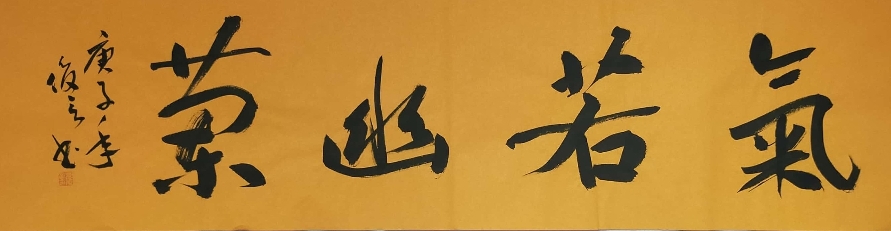 氣若幽蘭
庚子年
俊之书